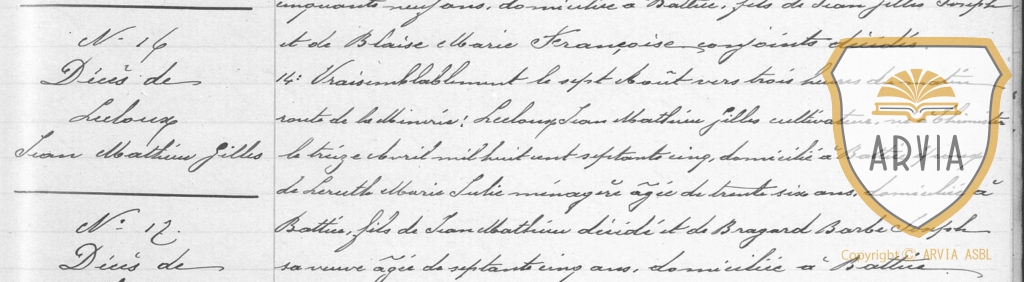 cinquante neuf ans, domiciliée à Battice, fils de Jean Gilles Joseph
N° 16
et de Blaise Marie Françoise conjoints décédés.
Décès de
14: Vraisemblablement le sept Août vers trois heures du matin
Lecloux
route de la Minerie: Lecloux Jean Mathieu Gilles cultivateur, né à Thimister
Jean Mathieu Gilles
le treize Avril mil huit cent septante cinq, domicilié à Battice,
de Lereuth Marie Julie ménagère âgée de trente six ans, domiciliée à
N° 17.
Battice, fils de Jean Mathieu décédé et de Bragard Barbe Joseph
Décès de
sa veuve âgée de septante cinq ans, domiciliée à Battice.
ARVIA
Copyright © ARVIA ASBL